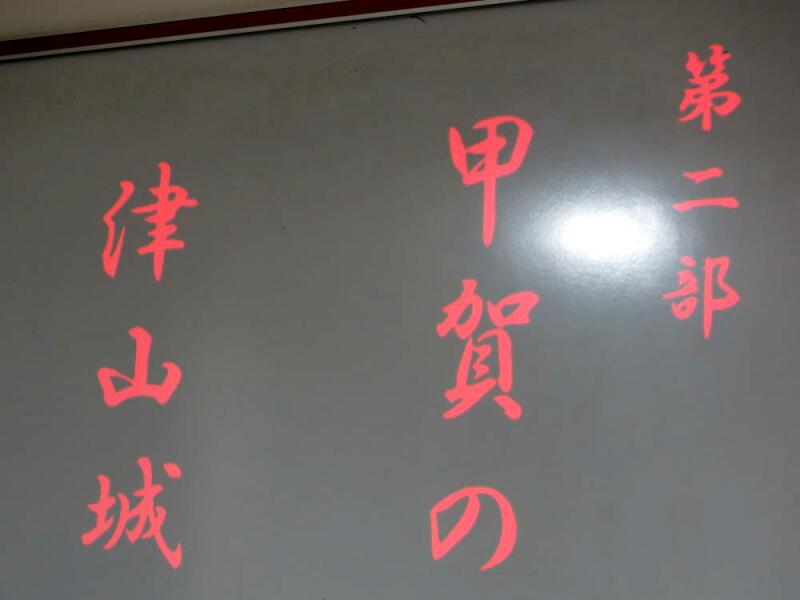 第二部
甲賀の
津山城